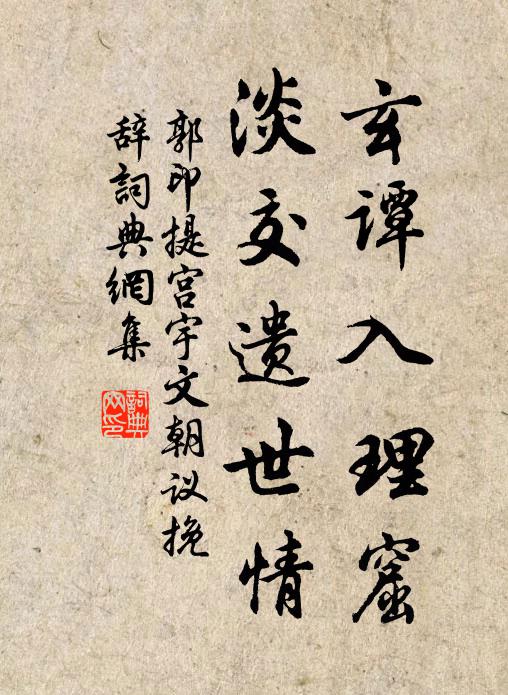 玄谭入理窟
淡交遗世情
郭印提宫宇文朝议挽
辞詞典網集
詞典网印